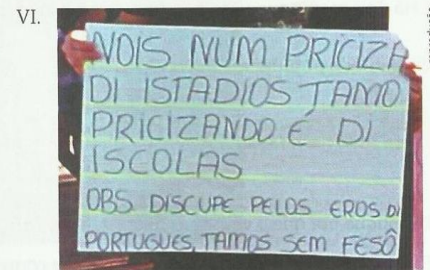 VI.
NOIS NUM PRICIZA
DI ISTADIOS TAMO
PRICIZANDO É DI
ISCOLAS
OBS DISCUPE PELOS EROS DI
PORTUGUES, TAMOS SEM FESÔ